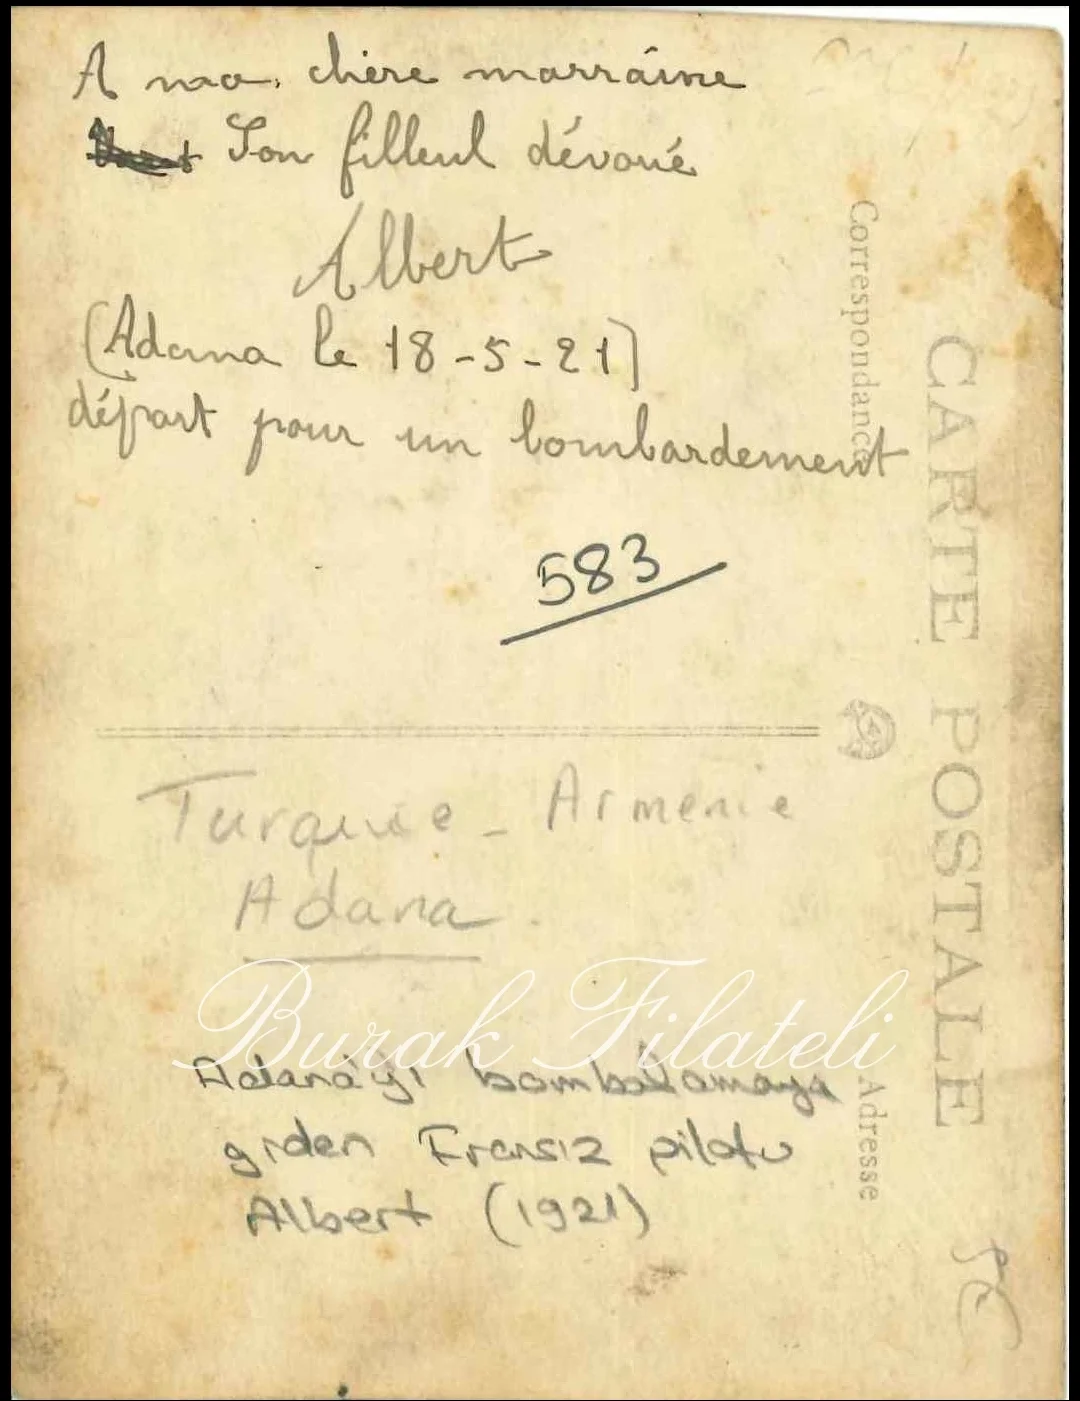 A ma chère marraine
Son filleul dévoué
Albert
(Adana le 18-5-21)
départ pour un bombardement
583
Turquie - Armenie
Adana
Burak Filateli
Adana'yı bombalamaya
giden Fransız pilotu
Albert (1921)
CARTE POSTALE
Correspondance
Adresse